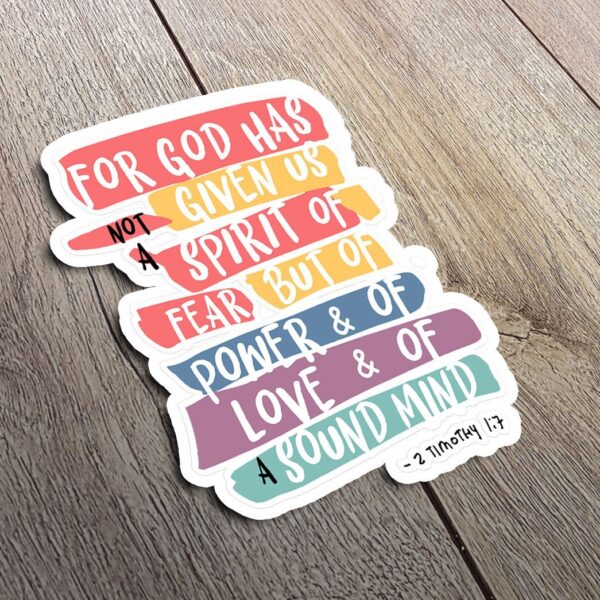 FOR GOD HAS
NOT GIVEN US
A SPIRIT OF
FEAR BUT OF
POWER & OF
LOVE & OF
A SOUND MIND
- 2 TIMOTHY 1:7